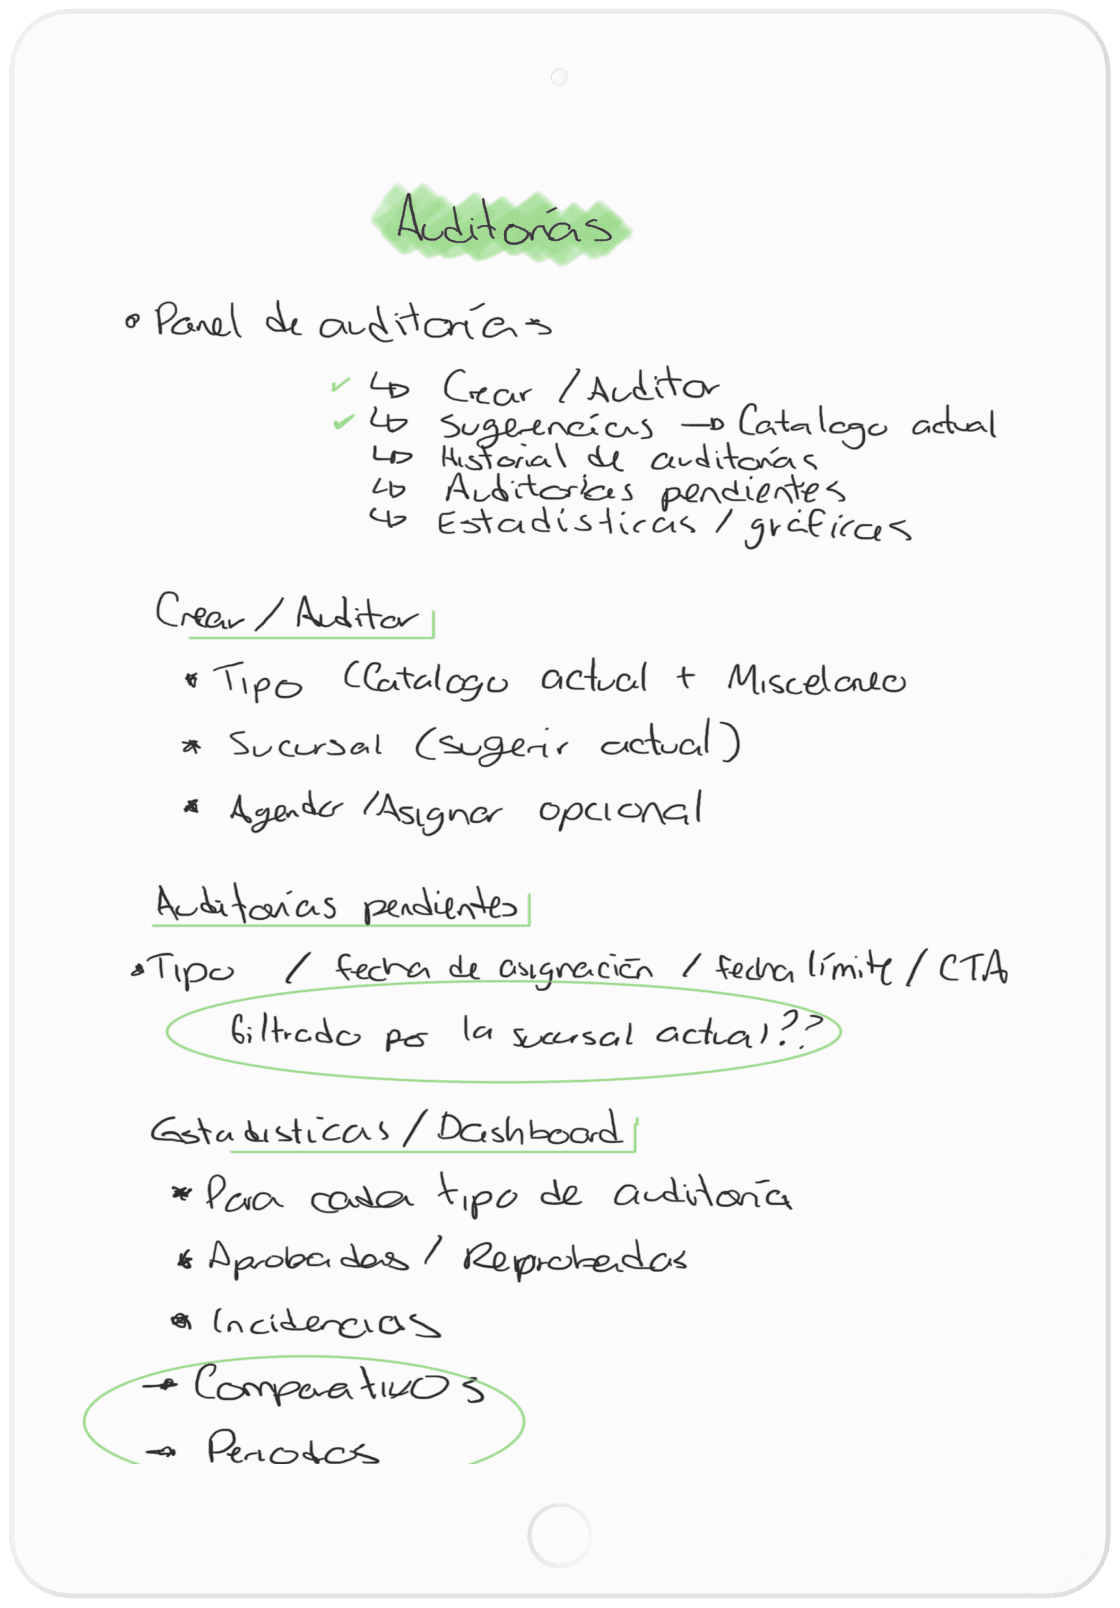 Auditorías
Panel de auditorías
✓ ↳ Crear / Auditor
✓ ↳ Sugerencias → Catalogo actual
↳ Historial de auditorías
↳ Auditorías pendientes
↳ Estadísticas / gráficas
Crear / Auditar
* Tipo (Catalogo actual + Miscelaneo
* Sucursal (sugerir actual)
* Agendar / Asignar opcional
Auditorías pendientes
Tipo / fecha de asignación / fecha límite / CTA
filtrado por la sucursal actual??
Estadisticas / Dashboard
* Para cada tipo de auditoría
* Aprobadas / Reprobadas
* Incidencias
→ Comparativos
→ Periodos